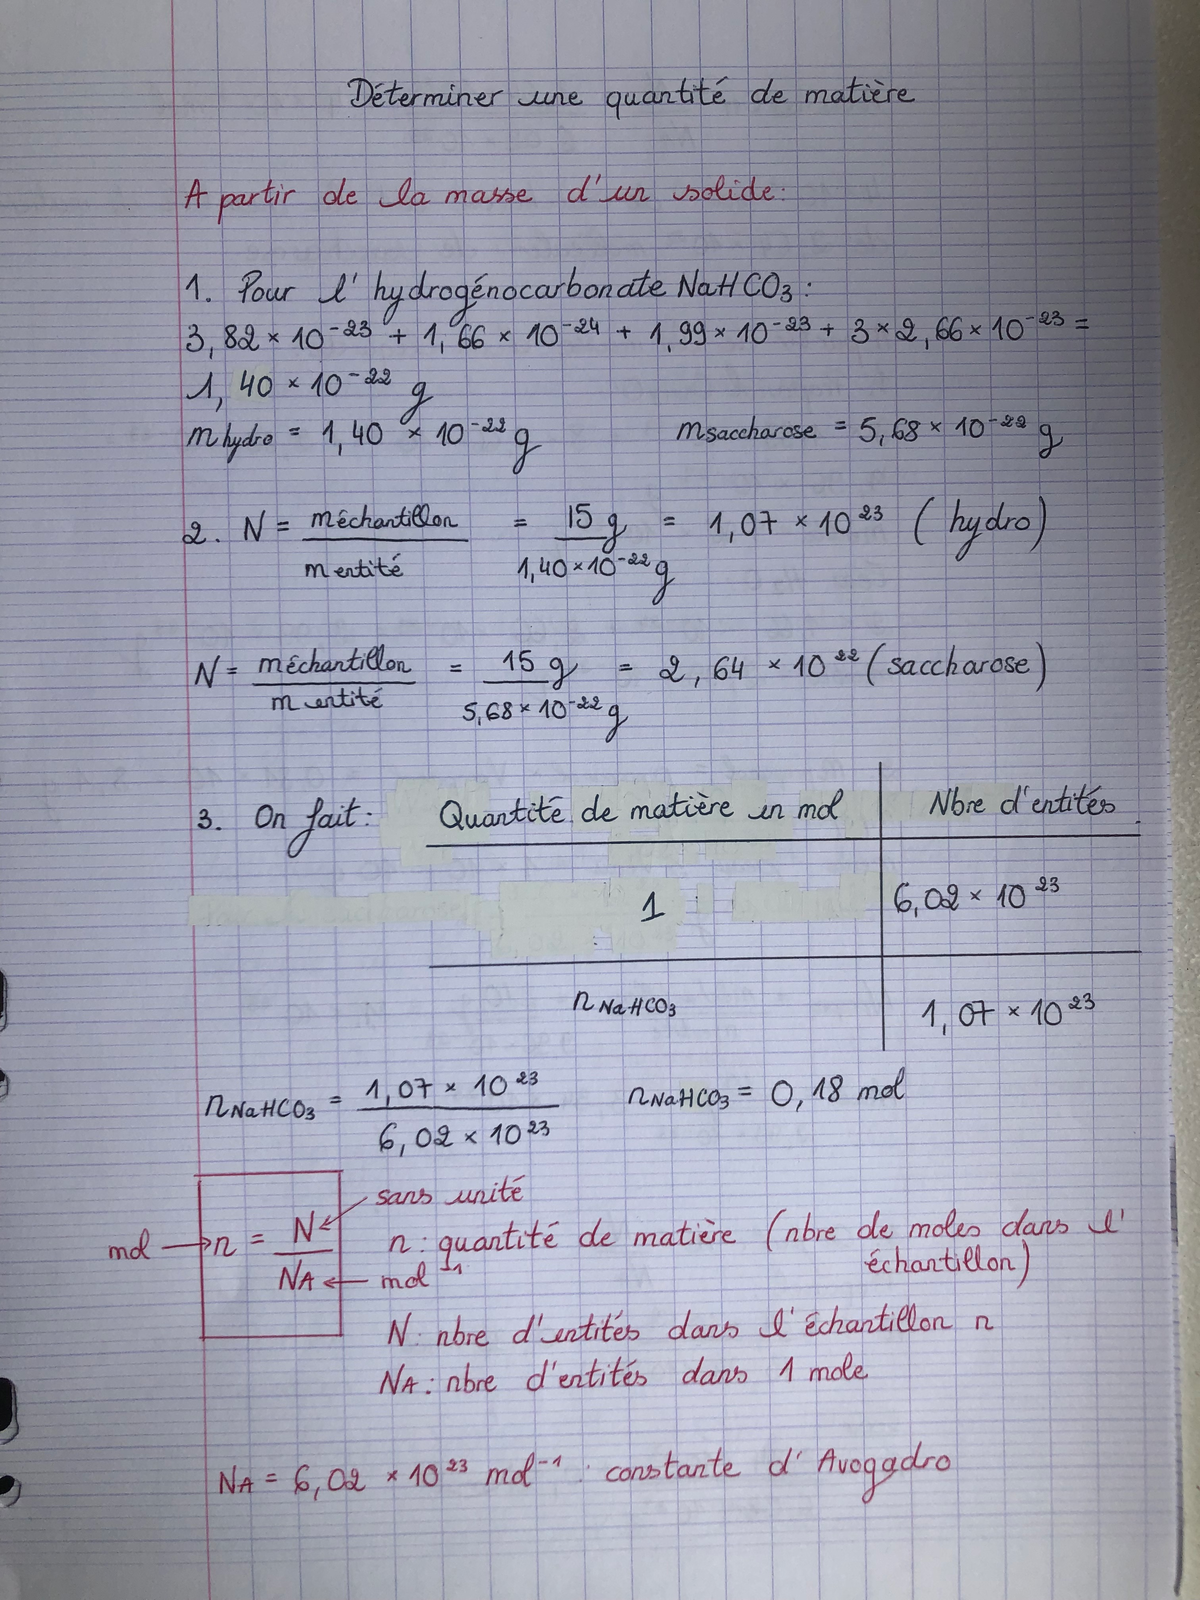 Déterminer une quantité de matière
A partir de la masse d'un solide:
1. Pour l'hydrogénocarbonate NaHCO₃ :
3,82 × 10⁻²³ + 1,66 × 10⁻²⁴ + 1,99 × 10⁻²³ + 3 × 2,66 × 10⁻²³ =
1,40 × 10⁻²² g
m hydro = 1,40 × 10⁻²² g m saccharose = 5,68 × 10⁻²² g
2. N = méchantillon / m entité = 15 g / 1,40 × 10⁻²² g = 1,07 × 10²³ (hydro)
N = méchantillon / m entité = 15 g / 5,68 × 10⁻²² g = 2,64 × 10²² (saccharose)
3. On fait : Quantité de matière en mol Nbre d'entités
1 6,02 × 10²³
n NaHCO₃ 1,07 × 10²³
n NaHCO₃ = 1,07 × 10²³ / 6,02 × 10²³ n NaHCO₃ = 0,18 mol
sans unité
mol → n = N / NA n : quantité de matière (nbre de moles dans l'
échantillon)
mol⁻¹
N : nbre d'entités dans l'échantillon n
NA : nbre d'entités dans 1 mole
NA = 6,02 × 10²³ mol⁻¹ : constante d'Avogadro